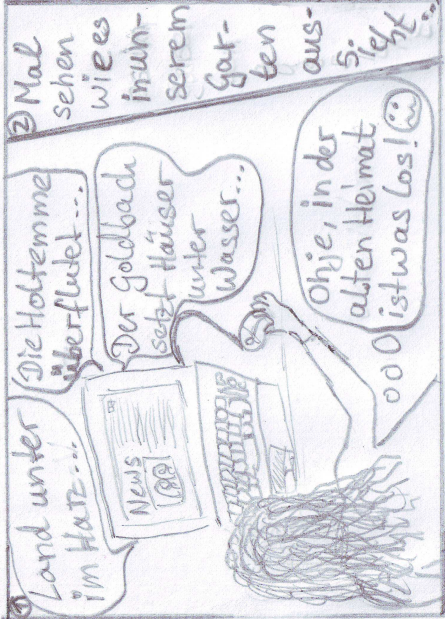 ①
Land unter
im Harz...
Die Holtemme
überflutet...
Der Goldbach
setzt Häuser
unter
Wasser...
News
Ohje, in der
alten Heimat
ist was los!
② Mal
sehen
wie es
in un-
serem
Gar-
ten
aus-
sieht...